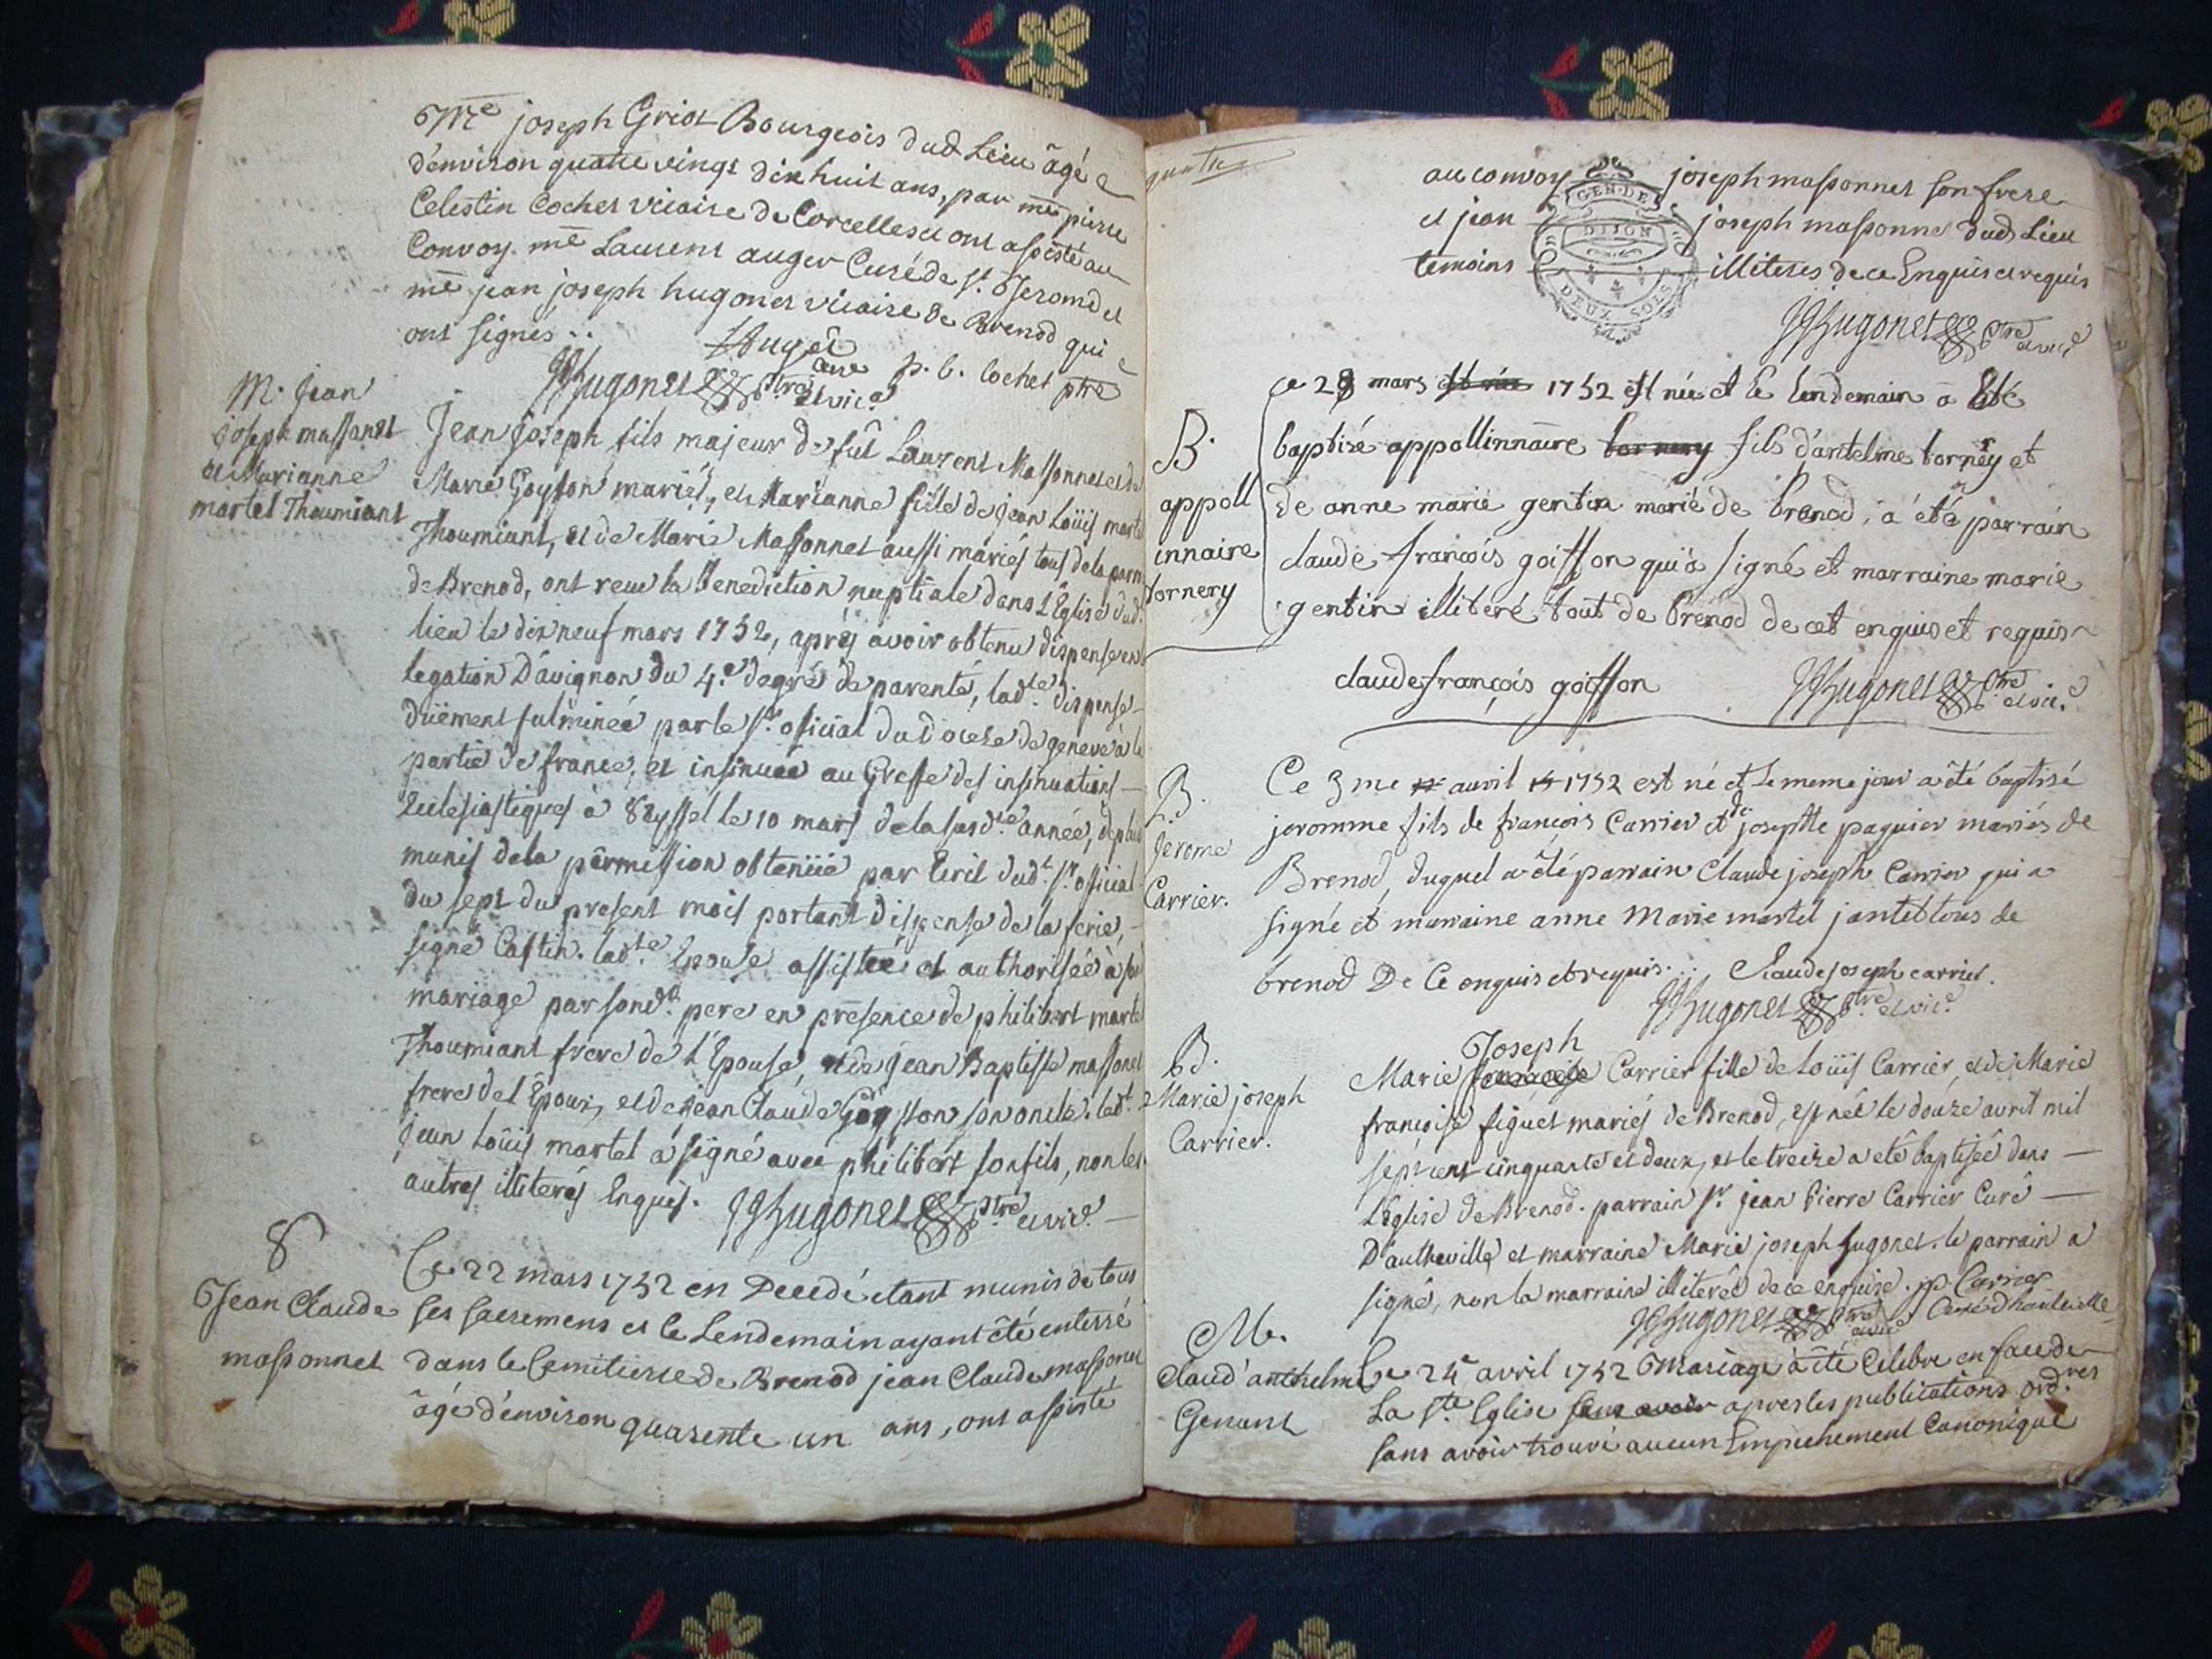 Me joseph Griot Bourgeois dud Lieu âgé
d'environ quatre vingt dix huit ans, par me pierre
Celestin Cochet vicaire de Corcelles et ont assisté au
Convoy me Laurent auger Curé de st. Jerome et
me jean joseph hugonet vicaire de Brenod qui
ont signés..
Auger
curé
p. c. Cochet ptre
JJhugonet ptre et vic.e
M. Jean
joseph massonet
et Marianne
martel Thoumiant
Jean Joseph fils majeur de fût Laurent Massonnet et de
Marie Goyffon mariés, et Marianne fille de jean Loüis martel
Thoumiant, et de Marie Massonnet aussi mariés tous de la parr.
de Brenod, ont recu la Benediction nuptiale dans l'Église dud.t
lieu le dix neuf mars 1752, après avoir obtenu dispense en
legation D'avignon du 4.e degré de parenté, lad.te dispense
düement fulminée par le sr. oficial du dioceze de geneve à la
partie de france, et insinuée au Greffe des insinuations
Ecclesiastiques à Seyssel le 10 mars de la susd.te année, de plus
munis de la permission obtenüe par Ecrit dud.t sr. official
du sept du present mois portant dispense de la ferie,
signé Castin. lad.te Epouse assistée et authorisée à son
mariage par sond.t pere en presence de philibert martel
Thoumiant frere de l'Epouse, et de jean Baptiste massonet
frere de l'Epoux, et de jean Claude Goyffon son oncle. led.t
jean Loüis martel a signé avec philibert son fils, non les
autres illiterés Enquis. JJhugonet ptre et vic.e
8
Jean Claude
massonnet
Ce 22 mars 1752 en Decedé etant munis de tous
ses sacremens et le Lendemain ayant êté enterré
dans le Cemitierre de Brenod jean Claude massonet
âgé d'environ quarente un ans, ont assisté
quatre
au convoy joseph massonnet son frere
et jean joseph massonnet dud Lieu
temoins illiterés de ce Enquis et requis
GEN. DE
DIJON
DEUX SOLS
JJhugonet ptre et vic.e
B.
appoll
innaire
tornery
ce 28 mars 1752 est née et le lendemain a Eté
baptisé appollinnaire tornery fils d'antelme tornery et
de anne marie gentin marié de brenod, a été parrain
claude francois goiffon qui a signé et marraine marie
gentin illiteré tout de brenod de cet enquis et requis
claude françois goiffon
JJhugonet ptre et vic.e
B.
Jerome
Carrier.
Ce 3me avril 1752 est né et le meme jour a êté baptisé
joromme fils de francois Carrier et de josephte paquier mariés de
Brenod, duquel a êté parrain Claude joseph Carrier qui a
signé et marraine anne Marie martel jantet tous de
brenod De Ce enquis et requis... Claude joseph carrier.
JJhugonet ptre et vic.e
B.
Marie joseph
Carrier.
Joseph
Marie francoise Carrier fille de Loüis Carrier, et de Marie
françoise figuet mariés de Brenod, est née le douze avril mil
sept cent cinquante et deux, et le treize a eté baptisée dans
l'Église de Brenod. parrain sr. jean Pierre Carrier Curé
D'autheville et marraine Marie joseph hugonet. le parrain a
signé, non la marraine illiterée de ce enquise. jp. Carrier
Curé d'hauteville
JJhugonet ptre et vic.e
M.
Claud'anthelme
Genant
Ce 24 avril 1752 Mariage a êté Celebré en face de
La ste Eglise sans avoir apres les publications ord.res
sans avoir trouvé aucun Empechement Canonique